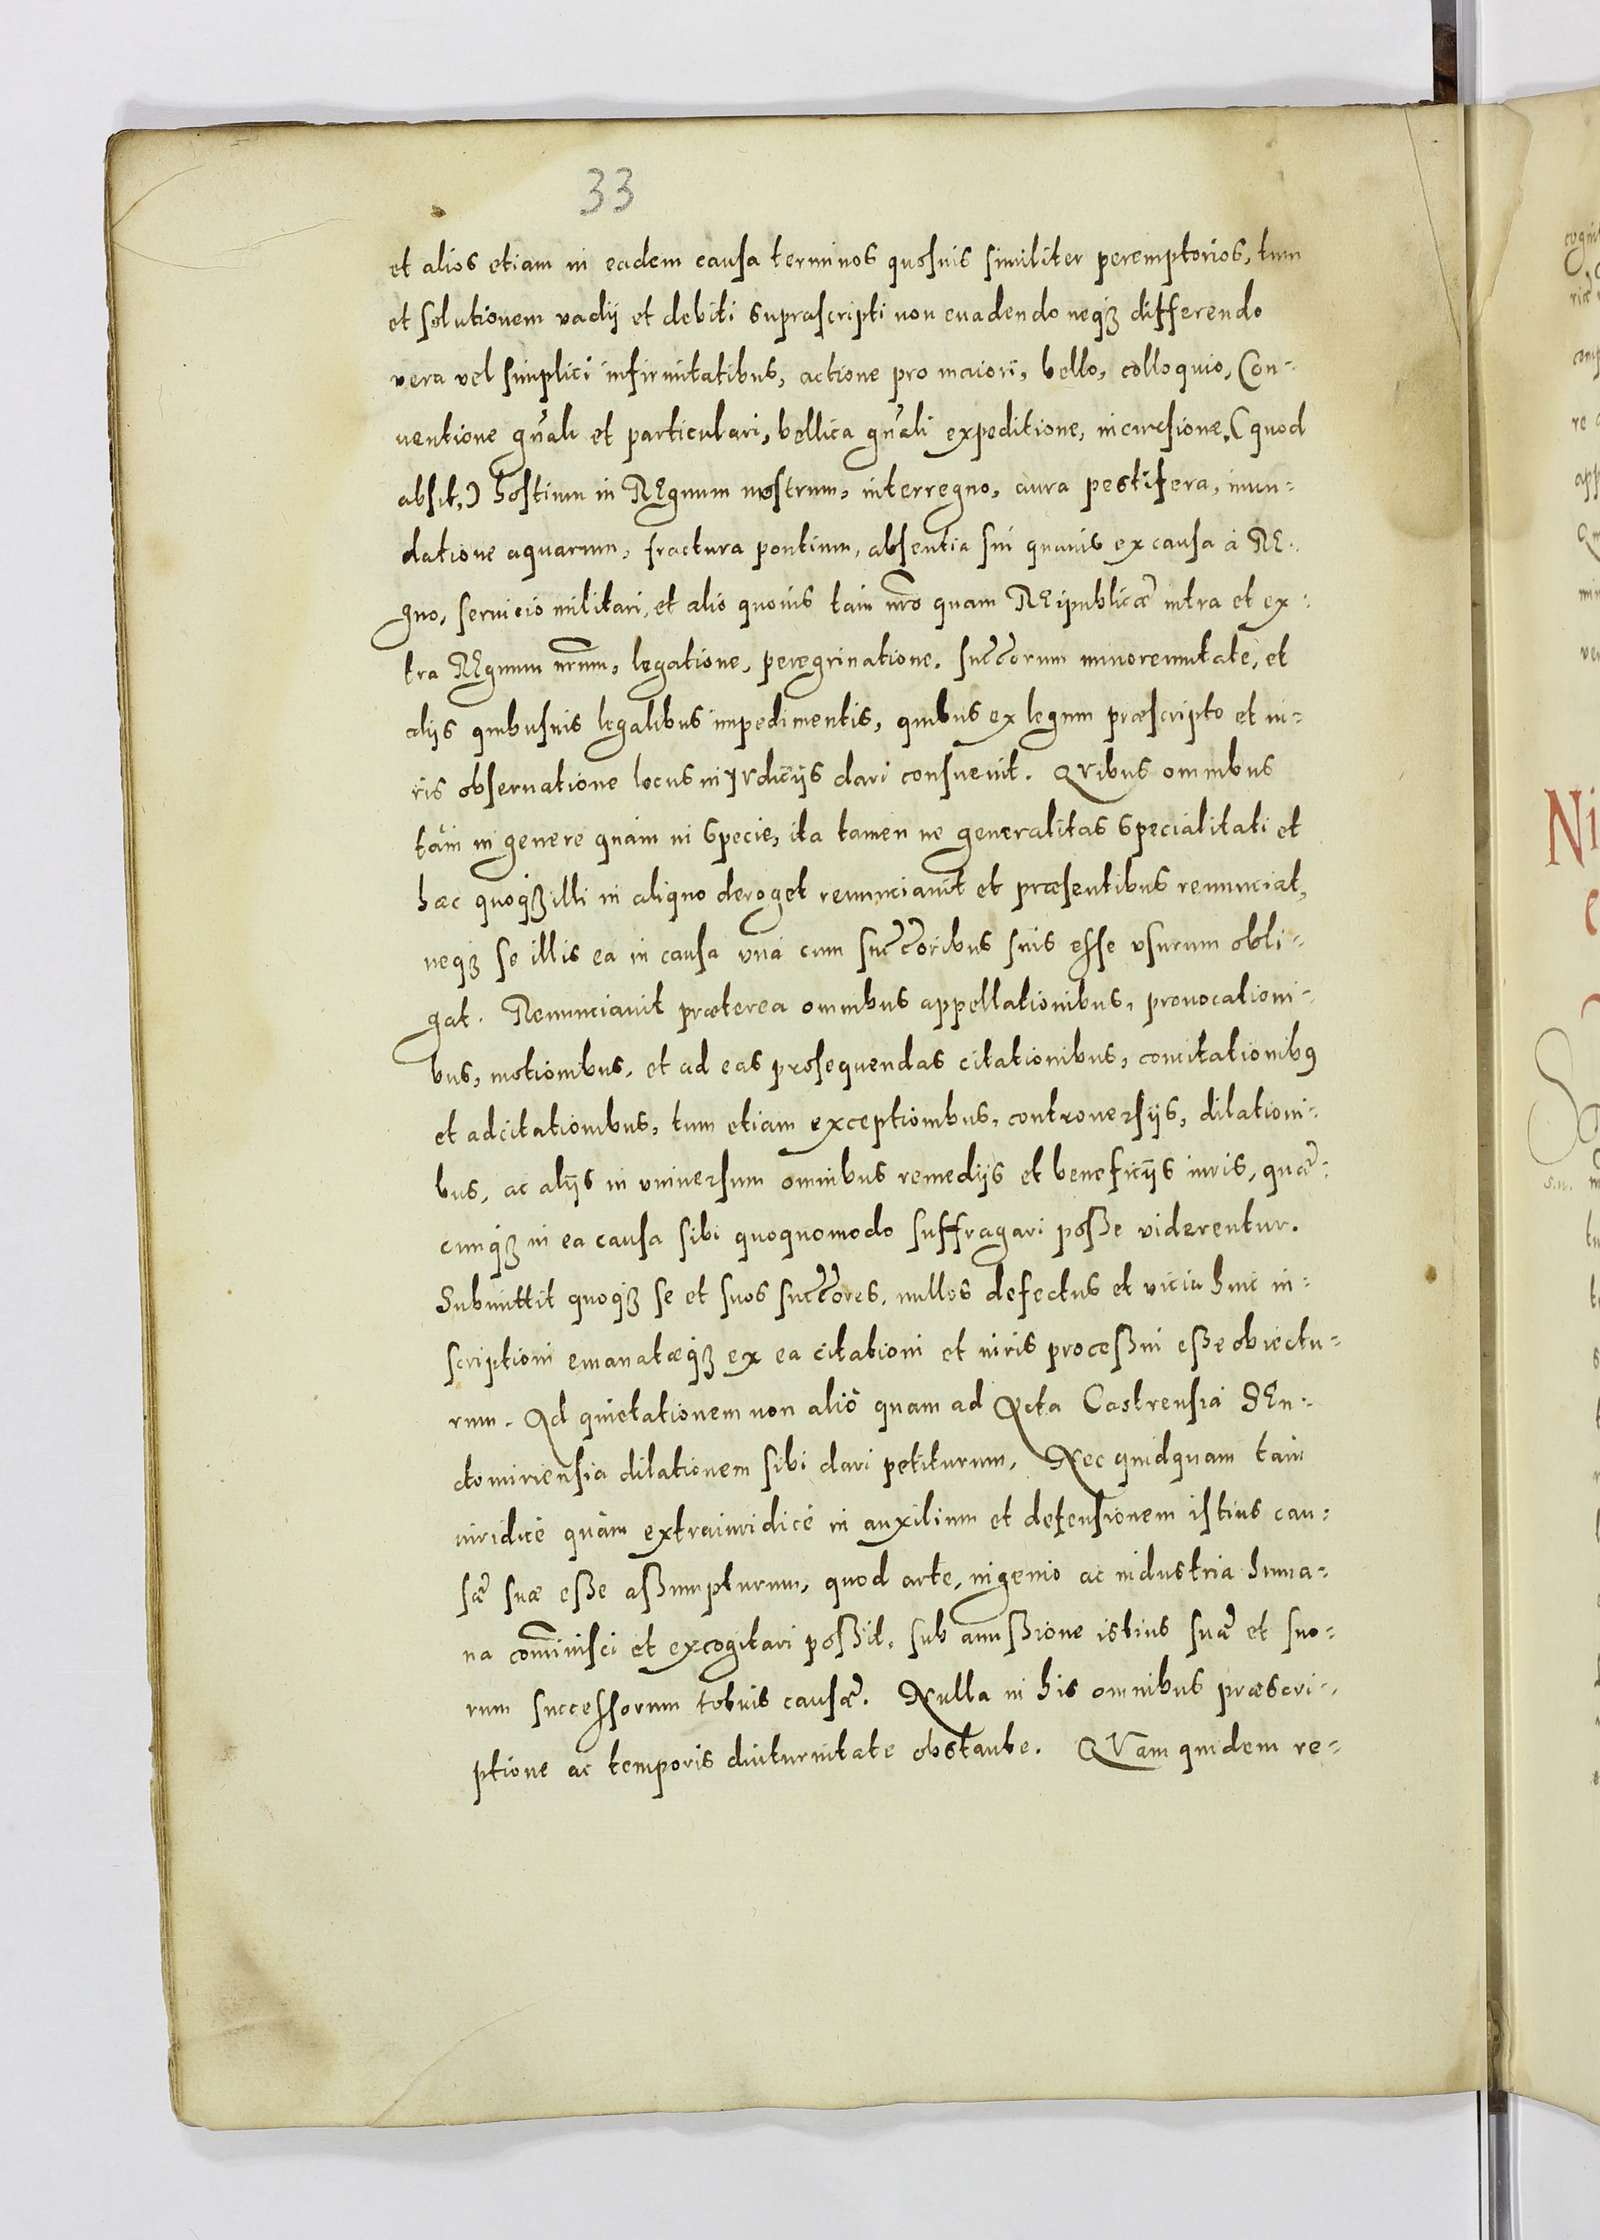 33
et alios etiam in eadem causa terminos quosuis similiter peremptorios, tum
et solutionem vadij et debiti suprascripti non euadendo neqȝ differendo
vera vel simplici infirmitatibus, actione pro maiori, bello, colloquio, Con-
uentione gn̄ali et particulari, bellica gn̄ali expeditione, incursione, (quod
absit,) hostium in REgnum nostrum, interregno, aura pestifera, inun-
datione aquarum, fractura pontium, absentia sui quauis ex causa à RE-
gno, seruicio militari, et alio quouis tam nr̄o quam REipublicæ intra et ex-
tra REgnum nr̄um, legatione, peregrinatione. succ̄orum minorennitate, et
alijs quibusuis legalibus impedimentis, quibus ex legum præscripto et iu-
ris obseruatione locus in Iudicijs dari consueuit. QVibus omnibus
tàm in genere quàm in specie, ita tamen ne generalitas specialitati et
hæc quoqȝ illi in aliquo deroget renunciauit et præsentibus renunciat,
neqȝ se illis ea in causa vnà cum succ̄oribus suis esse vsurum obli-
gat. Renunciauit præterea omnibus appellationibus, prouocationi-
bus, motionibus, et ad eas prosequendas citationibus, concitationibꝰ
et adcitationibus, tum etiam exceptionibus, controuersijs, dilationi-
bus, ac alijs in vniuersum omnibus remedijs et beneficijs iuris, quæ-
cunqȝ in ea causa sibi quoquomodo suffragari poße viderentur.
Submittit quoqȝ se et suos succ̄ores, nullos defectus et vicia huic in-
scriptioni emanatæqȝ ex ea citationi et iuris proceßui eße obiectu-
rum. Ad quietationem non aliò quam ad Acta Castrensia SEn-
domiriensia dilationem sibi dari petiturum. Nec quidquam tam
iuridicè quàm extraiuridicè in auxilium et defensionem istius cau-
sæ suæ eße aßumpturum, quod arte, ingenio ac industria huma-
na com̄inisci et excogitari poßit, sub amißione istius suæ et suo-
rum successorum totius causæ. Nulla in his omnibus præscri-
ptione ac temporis diuturnitate obstante. QVam quidem re-